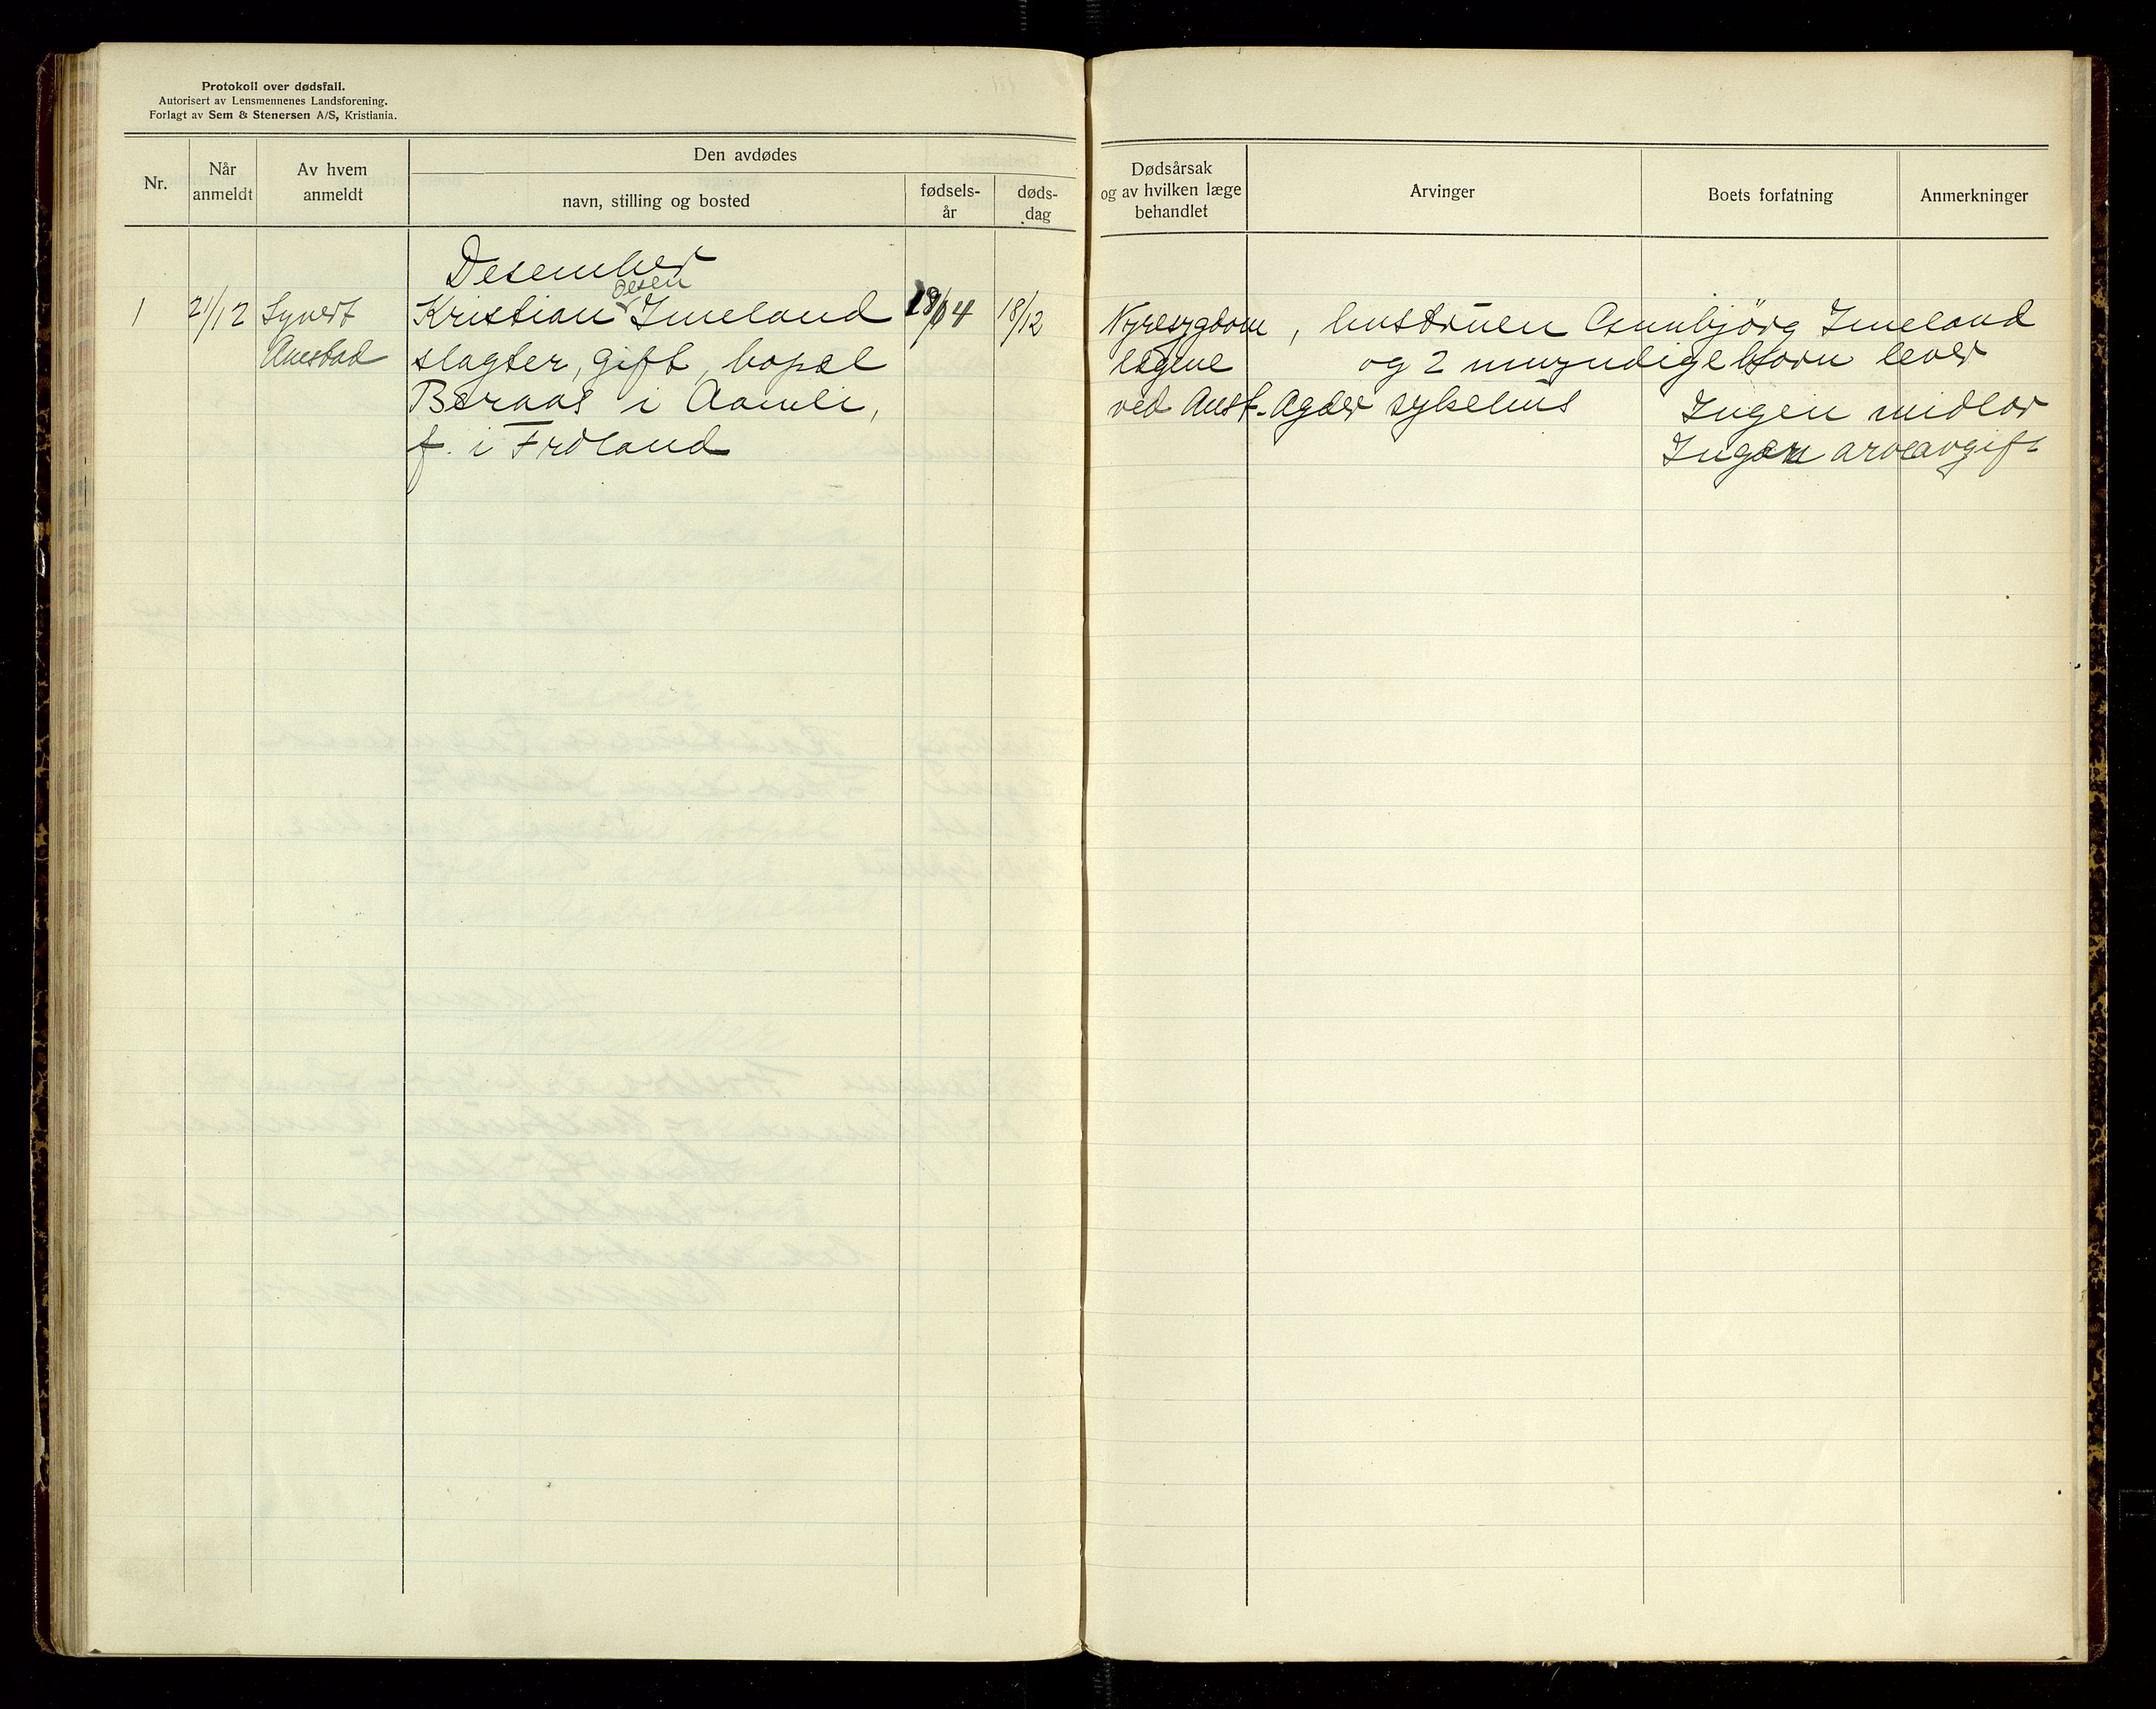 Protokoll over dødsfall.
Autorisert av Lensmennenes Landsforening.
Forlagt av Sem & Stenersen A/S, Kristiania.
Nr.
Når anmeldt
Av hvem anmeldt
Den avdødes
navn, stilling og bosted
fødsels-år
døds-dag
Dødsårsak og av hvilken læge behandlet
Arvinger
Boets forfatning
Anmerkninger
Desember
Olsen
1 21/12 Syvert Kristian Imeland 18/12 Nyresygdom, hustruen Gunnbjörg Imeland
Auestad slagter, gift, bopel legene og 2 umyndige born lever
Beraas i Aamli, ved Aust-Agder sykehus Ingen midlar
f. i Froland Ingen arveavgift